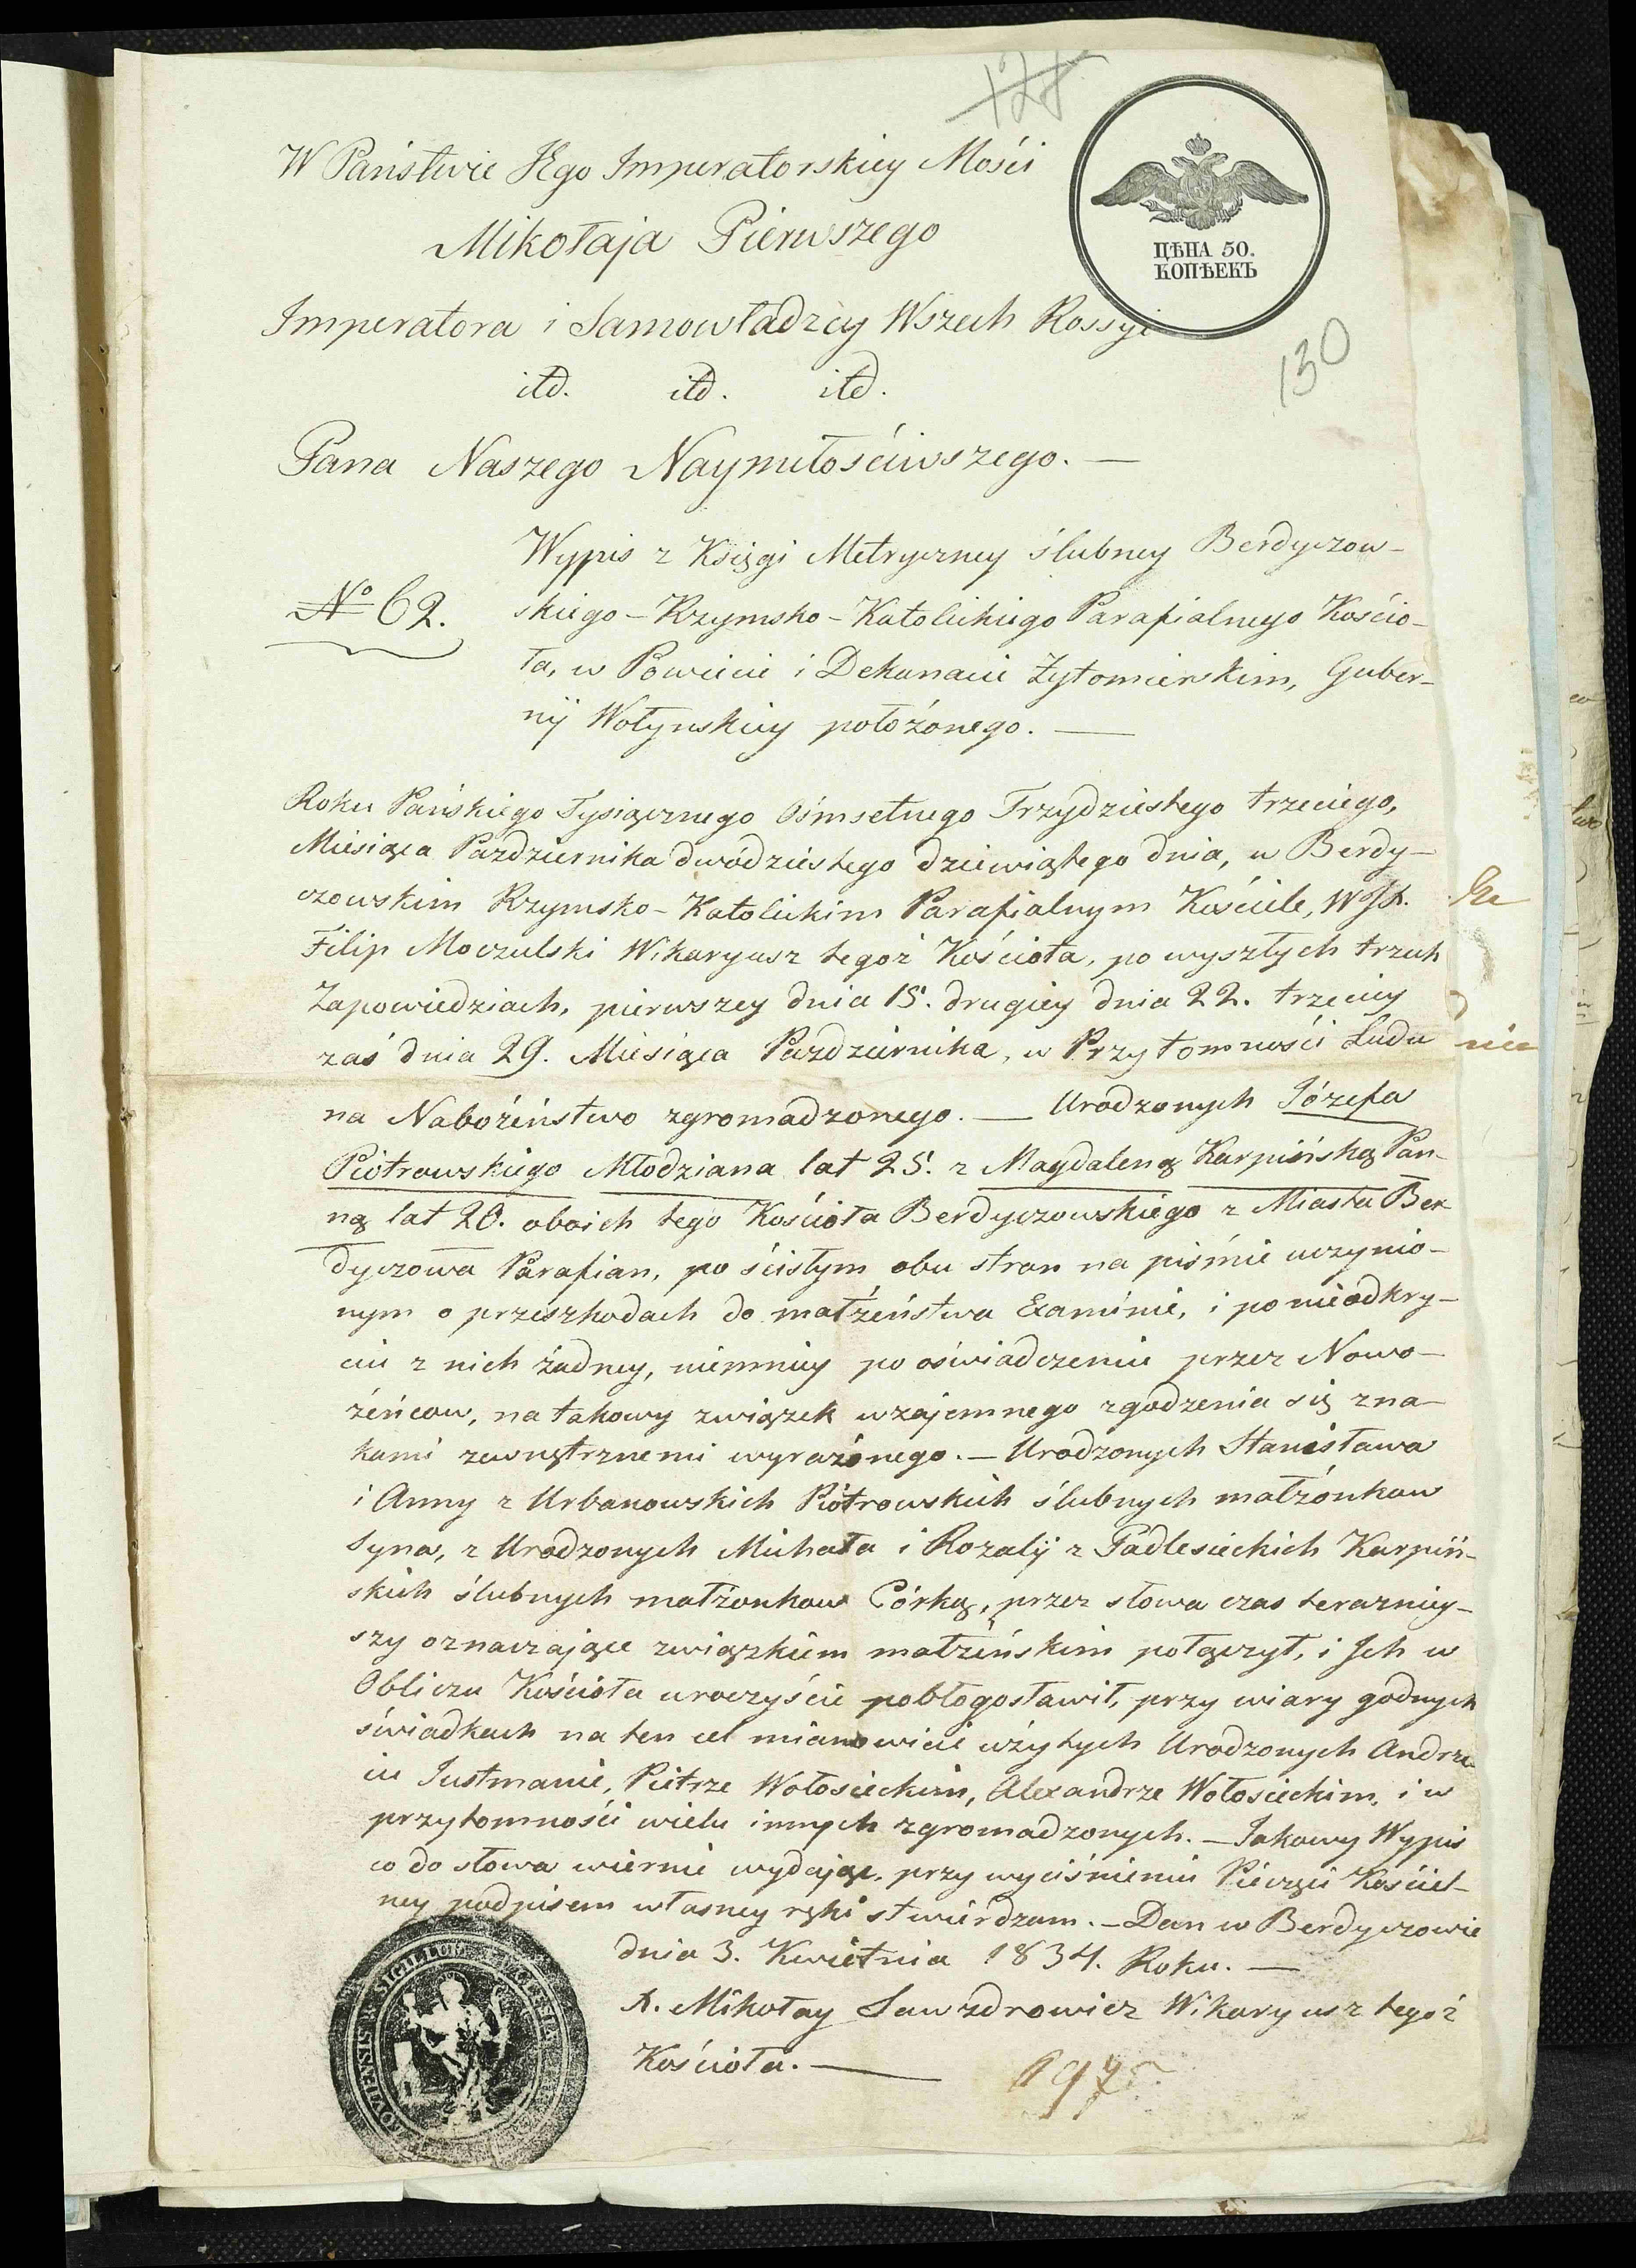 128
W Państwie Jego Imperatorskiey Mości
Mikołaja Pierwszego
ЦѢНА 50.
КОПѢЕКЪ
Imperatora i Samowładzcy Wszech Rossyi
130
itd. itd. itd.
Pana Naszego Naymiłościwszego. —
Wypis z Księgi Metryczney ślubney Berdyczow-
№ 62.
skiego - Rzymsko - Katolickiego Parafialnego Kościo-
ła, w Powiecie i Dekanacie Żytomierskim, Guber-
nij Wołynskiey położonego. —
Roku Pańskiego Tysiącznego Ośmsetnego Trzydziestego trzeciego,
Miesiąca Pazdziernika dwódziestego dziewiątego dnia, w Berdy-
czowskim Rzymsko - Katolickim Parafialnym Kościele, WJX.
Filip Moczulski Wikaryusz tegoż Kościoła, po wyszłych trzech
Zapowiedziach, pierwszey dnia 15. drugiey dnia 22. trzeciey
zaś dnia 29. Miesiąca Pazdziernika, w Przytomności Ludu
na Nabożeństwo zgromadzonego. — Urodzonych Józefa
Piotrowskiego Młodziana lat 25. z Magdaleną Karpińską Pan-
ną lat 20. oboich tego Kościoła Berdyczowskiego z Miasta Ber
dyczowa Parafian, po ścisłym obu stron na piśmie uczynio-
nym o przeszkodach do małżeństwa Examinie, i po nieodkry-
ciu z nich żadney, niemniey po oświadczeniu przez Nowo-
żeńcow, na takowy związek wzajemnego zgodzenia się zna-
kami zewnętrznemi wyrażonego. — Urodzonych Stanisława
i Anny z Urbanowskich Piotrowskich ślubnych małżónkow
Syna, z Urodzonych Michała i Rozalij z Padlesieckich Karpiń-
skich ślubnych małżonkow Córką, przez słowa czas teraźniey-
szy oznaczające związkiem małżeńskim połączył, i Ich w
Obliczu Kościoła uroczyście pobłogosławił, przy wiary godnych
świadkach na ten cel mianowicie użytych Urodzonych Andrze
iu Justmanie, Pietrze Wołosieckim, Alexandrze Wołosieckim, i w
przytomności wielu innych zgromadzonych. — Jakowy Wypis
co do słowa wiernie wydając, przy wyciśnieniu Pieczęci Kościel-
ney podpisem własney ręki stwierdzam. — Dan w Berdyczowie
dnia 3. Kwietnia 1834. Roku. —
X. Mikołay Sawzdrowicz Wikaryusz tegoż
Kościoła. —
SIGILLUM